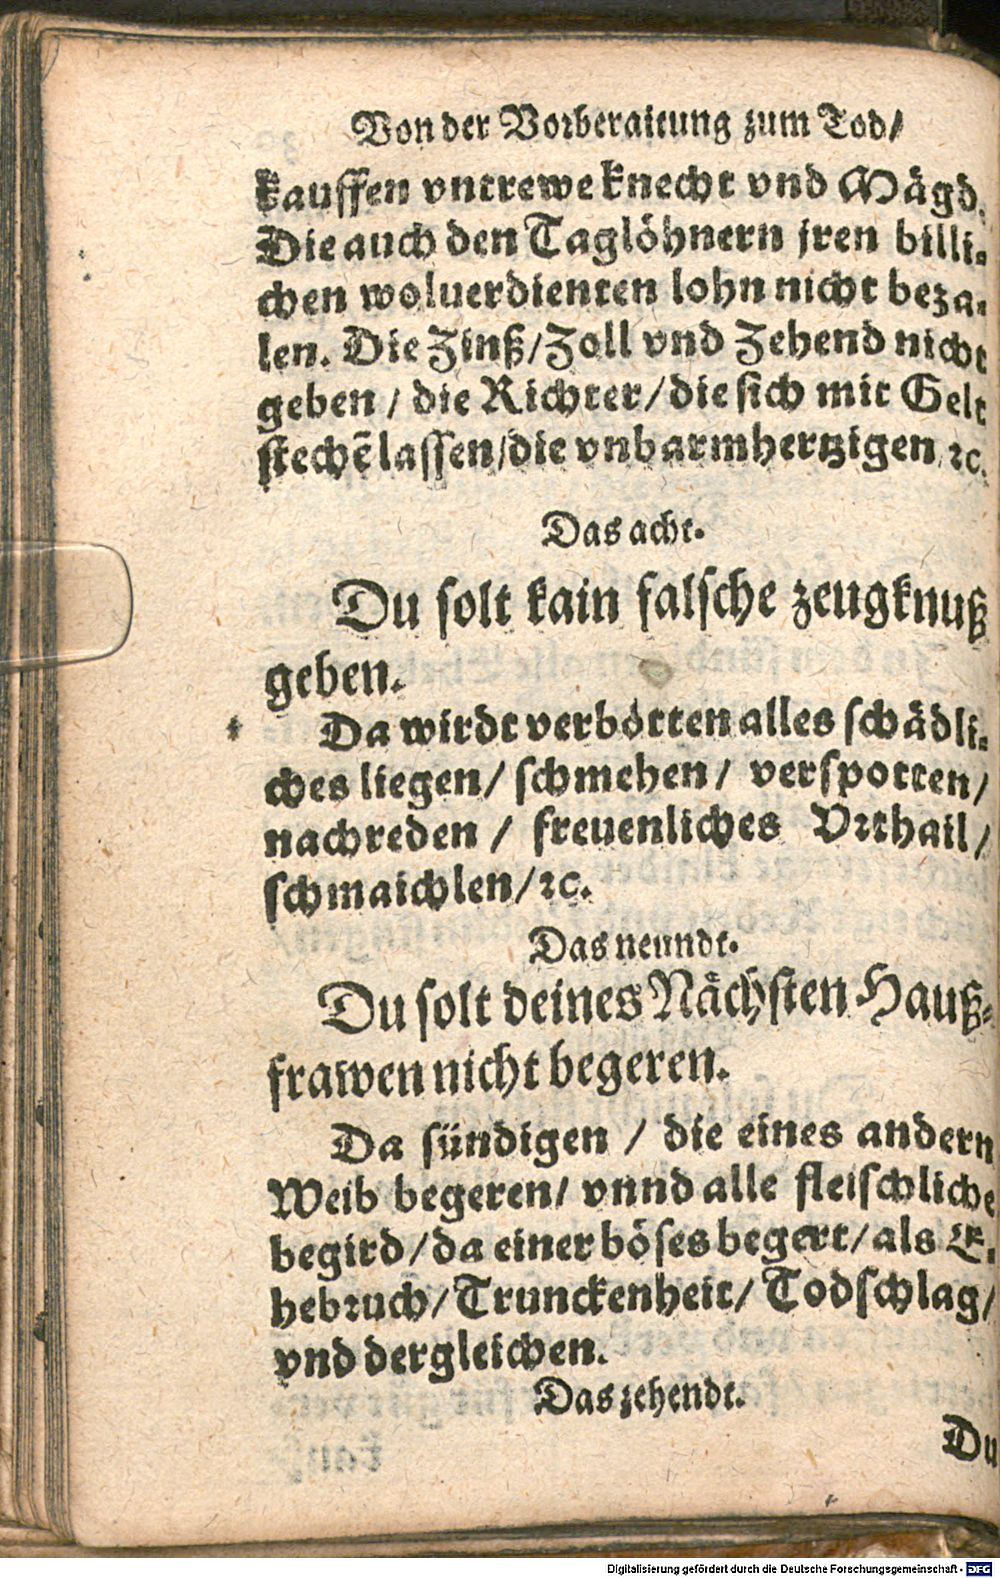 Von der Vorberaitung zum Tod/
kauffen vntrewe knecht vnd Mägd.
Die auch den Taglöhnern jren billi-
chen woluerdienten lohn nicht beza-
len. Die Zinß/Zoll vnd Zehend nicht
geben / die Richter/die sich mit Gelt
stechē lassen/die vnbarmhertzigen ꝛc.
Das acht.
Du solt kain falsche zeugknuß
geben.
Da wirdt verbotten alles schädli-
ches liegen/ schmehen/ verspotten/
nachreden / freuenliches Vrthail/
schmaichlen/ꝛc.
Das neundt.
Du solt deines Nächsten Hauß-
frawen nicht begeren.
Da sündigen / die eines andern
Weib begeren/ vnnd alle fleischliche
begird/da einer böses begert/als E-
hebruch/Trunckenheit/Todschlag/
vnd dergleichen.
Das zehendt.
Du
Digitalisierung gefördert durch die Deutsche Forschungsgemeinschaft - DFG